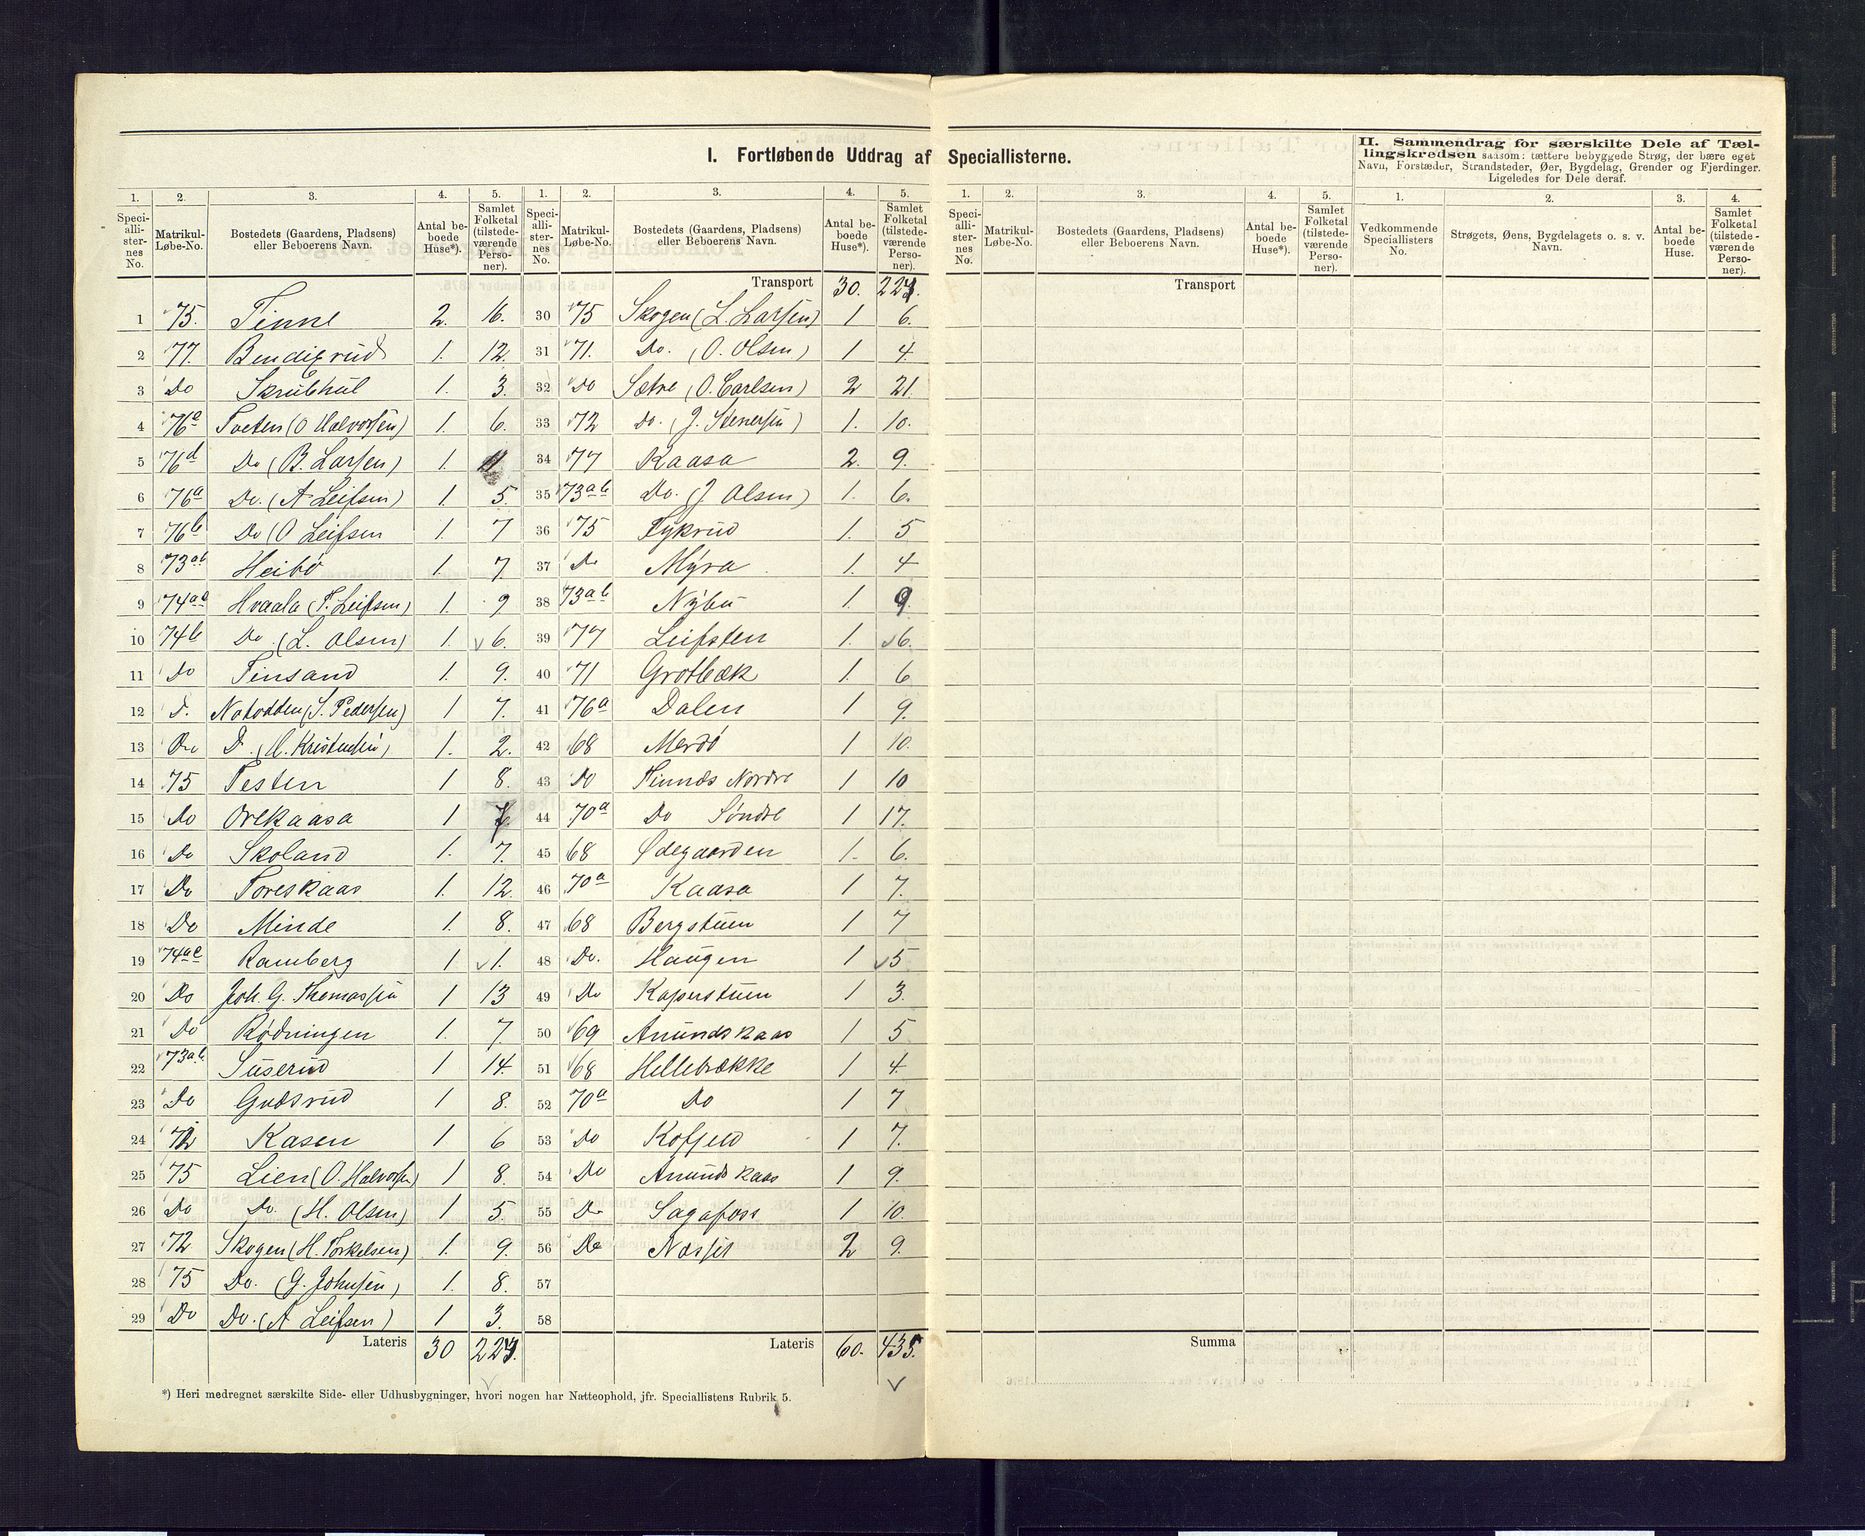 I. Fortløbende Uddrag af Speciallisterne.
II. Sammendrag for særskilte Dele af Tællingskredsen saasom: tættere bebyggede Strøg, der bære eget
Navn, Forstæder, Strandsteder, Øer, Bygdelag, Grender og Fjerdinger.
Ligeledes for Dele deraf.
1. 2. 3. 4. 5. 1. 2. 3. 4. 5. 1. 2. 3. 4. 5. 1. 2. 3. 4.
Speciallisternes No. Matrikul-Løbe-No. Bostedets (Gaardens, Pladsens) eller Beboerens Navn. Antal beboede Huse*). Samlet Folketal (tilstedeværende Personer).
Speciallisternes No. Matrikul-Løbe-No. Bostedets (Gaardens, Pladsens) eller Beboerens Navn. Antal beboede Huse*). Samlet Folketal (tilstedeværende Personer).
Speciallisternes No. Matrikul-Løbe-No. Bostedets (Gaardens, Pladsens) eller Beboerens Navn. Antal beboede Huse*). Samlet Folketal (tilstedeværende Personer).
Vedkommende Speciallisters No. Strøgets, Øens, Bygdelagets o. s. v. Navn. Antal beboede Huse. Samlet Folketal (tilstedeværende Personer).
1 75. Tinne 2. 16.
2 77. Bendigrud 1. 12.
3 Do Skrubhul 1. 3.
4 76a Tveten (O Halvorsen) 1. 6.
5 76d Do (B. Larsen) 1. 11.
6 76a Do. (A Leifsen) 1. 5.
7 76b Do (O Leifsen 1. 7
8 73ab Heibø 1. 7.
9 74aa Hvaala (T. Leifsen) 1. 9
10 74b Do (L. Olsen) 1. 6.
11 Do Tinsand 1. 9.
12 D. Notodden (S. Pedersen) 1 7.
13 Do D. (H. Kristensen) 1. 2.
14 75 Testen 1 8.
15 Do Orekaasa 1
16 Do Skoland 1. 7.
17 Do Toreskaas 1. 12.
18 Do Minde 1. 8.
19 74ac Ramberg 1 1.
20 Do Joh. G. Thomassen 1 13
21 Do Rødningen 1. 7
22 73ab. Suserud 1 14.
23 Do Gudsrud 1 8.
24 72 Kasen 1 6
25 75 Lien (O. Halvorsen) 1 8.
26 Do Do. (H. Olsen) 1 5.
27 72 Skogen (H. Torkelsen) 1. 9.
28 75 Do. (G. Johnsen) 1. 8.
29 Do Do. (A Leifsen) 1 3.
Lateris 30
Transport 30.
30 75 Skogen (L. Larsen) 1 6.
31 71. Do. (O. Olsen) 1 4.
32 Do Sætre (O. Carlsen) 2 21.
33 72 Do. (J. Stenersen) 1. 10.
34 77 Kaasa 2. 9.
35 73ab Do. (J. Olsen) 1. 6.
36 75 Tykrud 1. 5
37 Do Myra 1. 4
38 73ab Nybu 1. 9.
39 77 Leifsten 1. 6.
40 71 Grotbæk 1. 6
41 76a Dalen 1 9.
42 68 Merdø 1 10.
43 Do Tinnæs Nordre 1 10
44 70a Do Søndre 1 17.
45 68 Ødegaarden 1. 6.
46 70a Kaasa 1 7.
47 68 Bergstuen 1 7
48 Do. Haugen 1 5
49 Do Kaperstuen 1 3.
50 69 Anundskaas 1 5
51 68 Hellebrække 1 4
52 70a Do 1 7
53 Do Kofjeld 1 7.
54 Do Anundskaas 1 9.
55 Do Sagafoss 1 10.
56 Do Næsset 2 9.
57
58
Lateris 60. 435.
Transport
Summa
*) Heri medregnet særskilte Side- eller Udhusbygninger, hvori nogen har Natteophold, jfr. Speciallistens Rubrik 5.